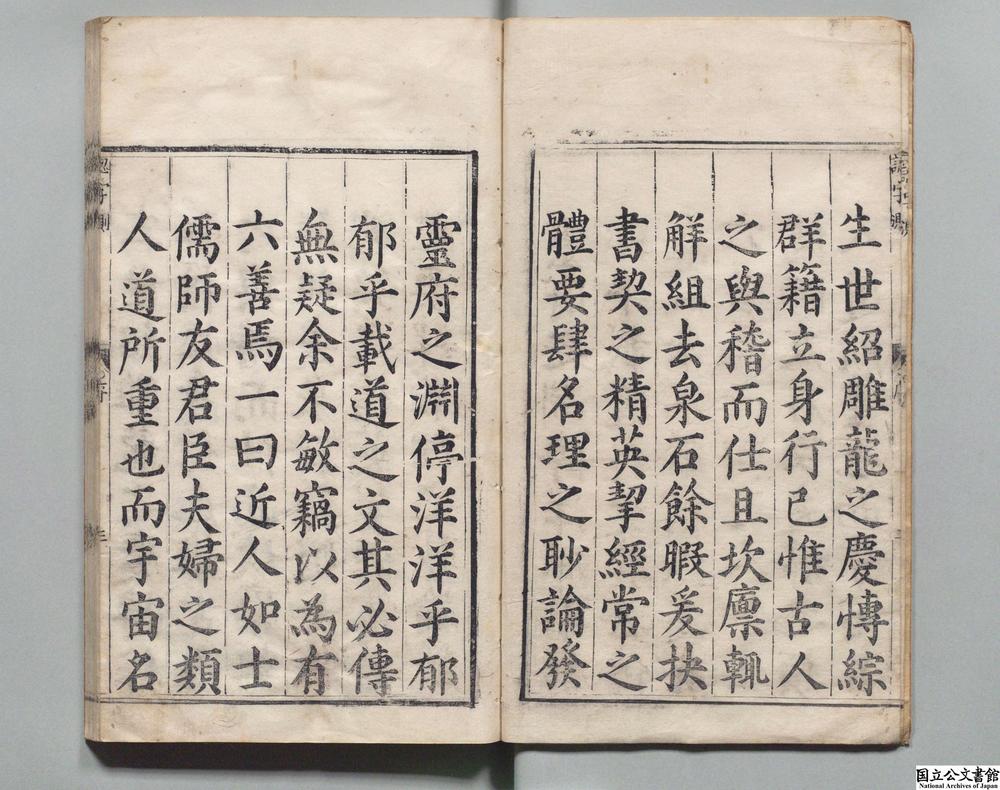 生世紹雕龍之慶愽綜
群籍立身行己惟古人
之與稽而仕且坎廪輙
解組去泉石餘暇爰抉
書契之精英挈經常之
體要肆名理之眇論發
靈府之淵停洋洋乎郁
郁乎載道之文其必傳
無疑余不敏竊以為有
六善焉一曰近人如士
儒師友君臣夫婦之類
人道所重也而宇宙名
国立公文書館
National Archives of Japan